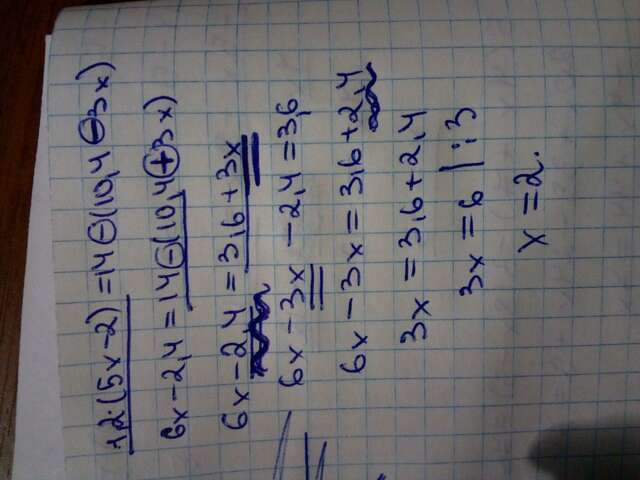 1,2·(5x-2)=14⊖(10,4⊖3x)
6x-2,4=14⊖(10,4⊕3x)
6x-2,4=3,6+3x
6x-3x-2,4=3,6
6x-3x=3,6+2,4
3x=3,6+2,4
3x=6 |:3
x=2.